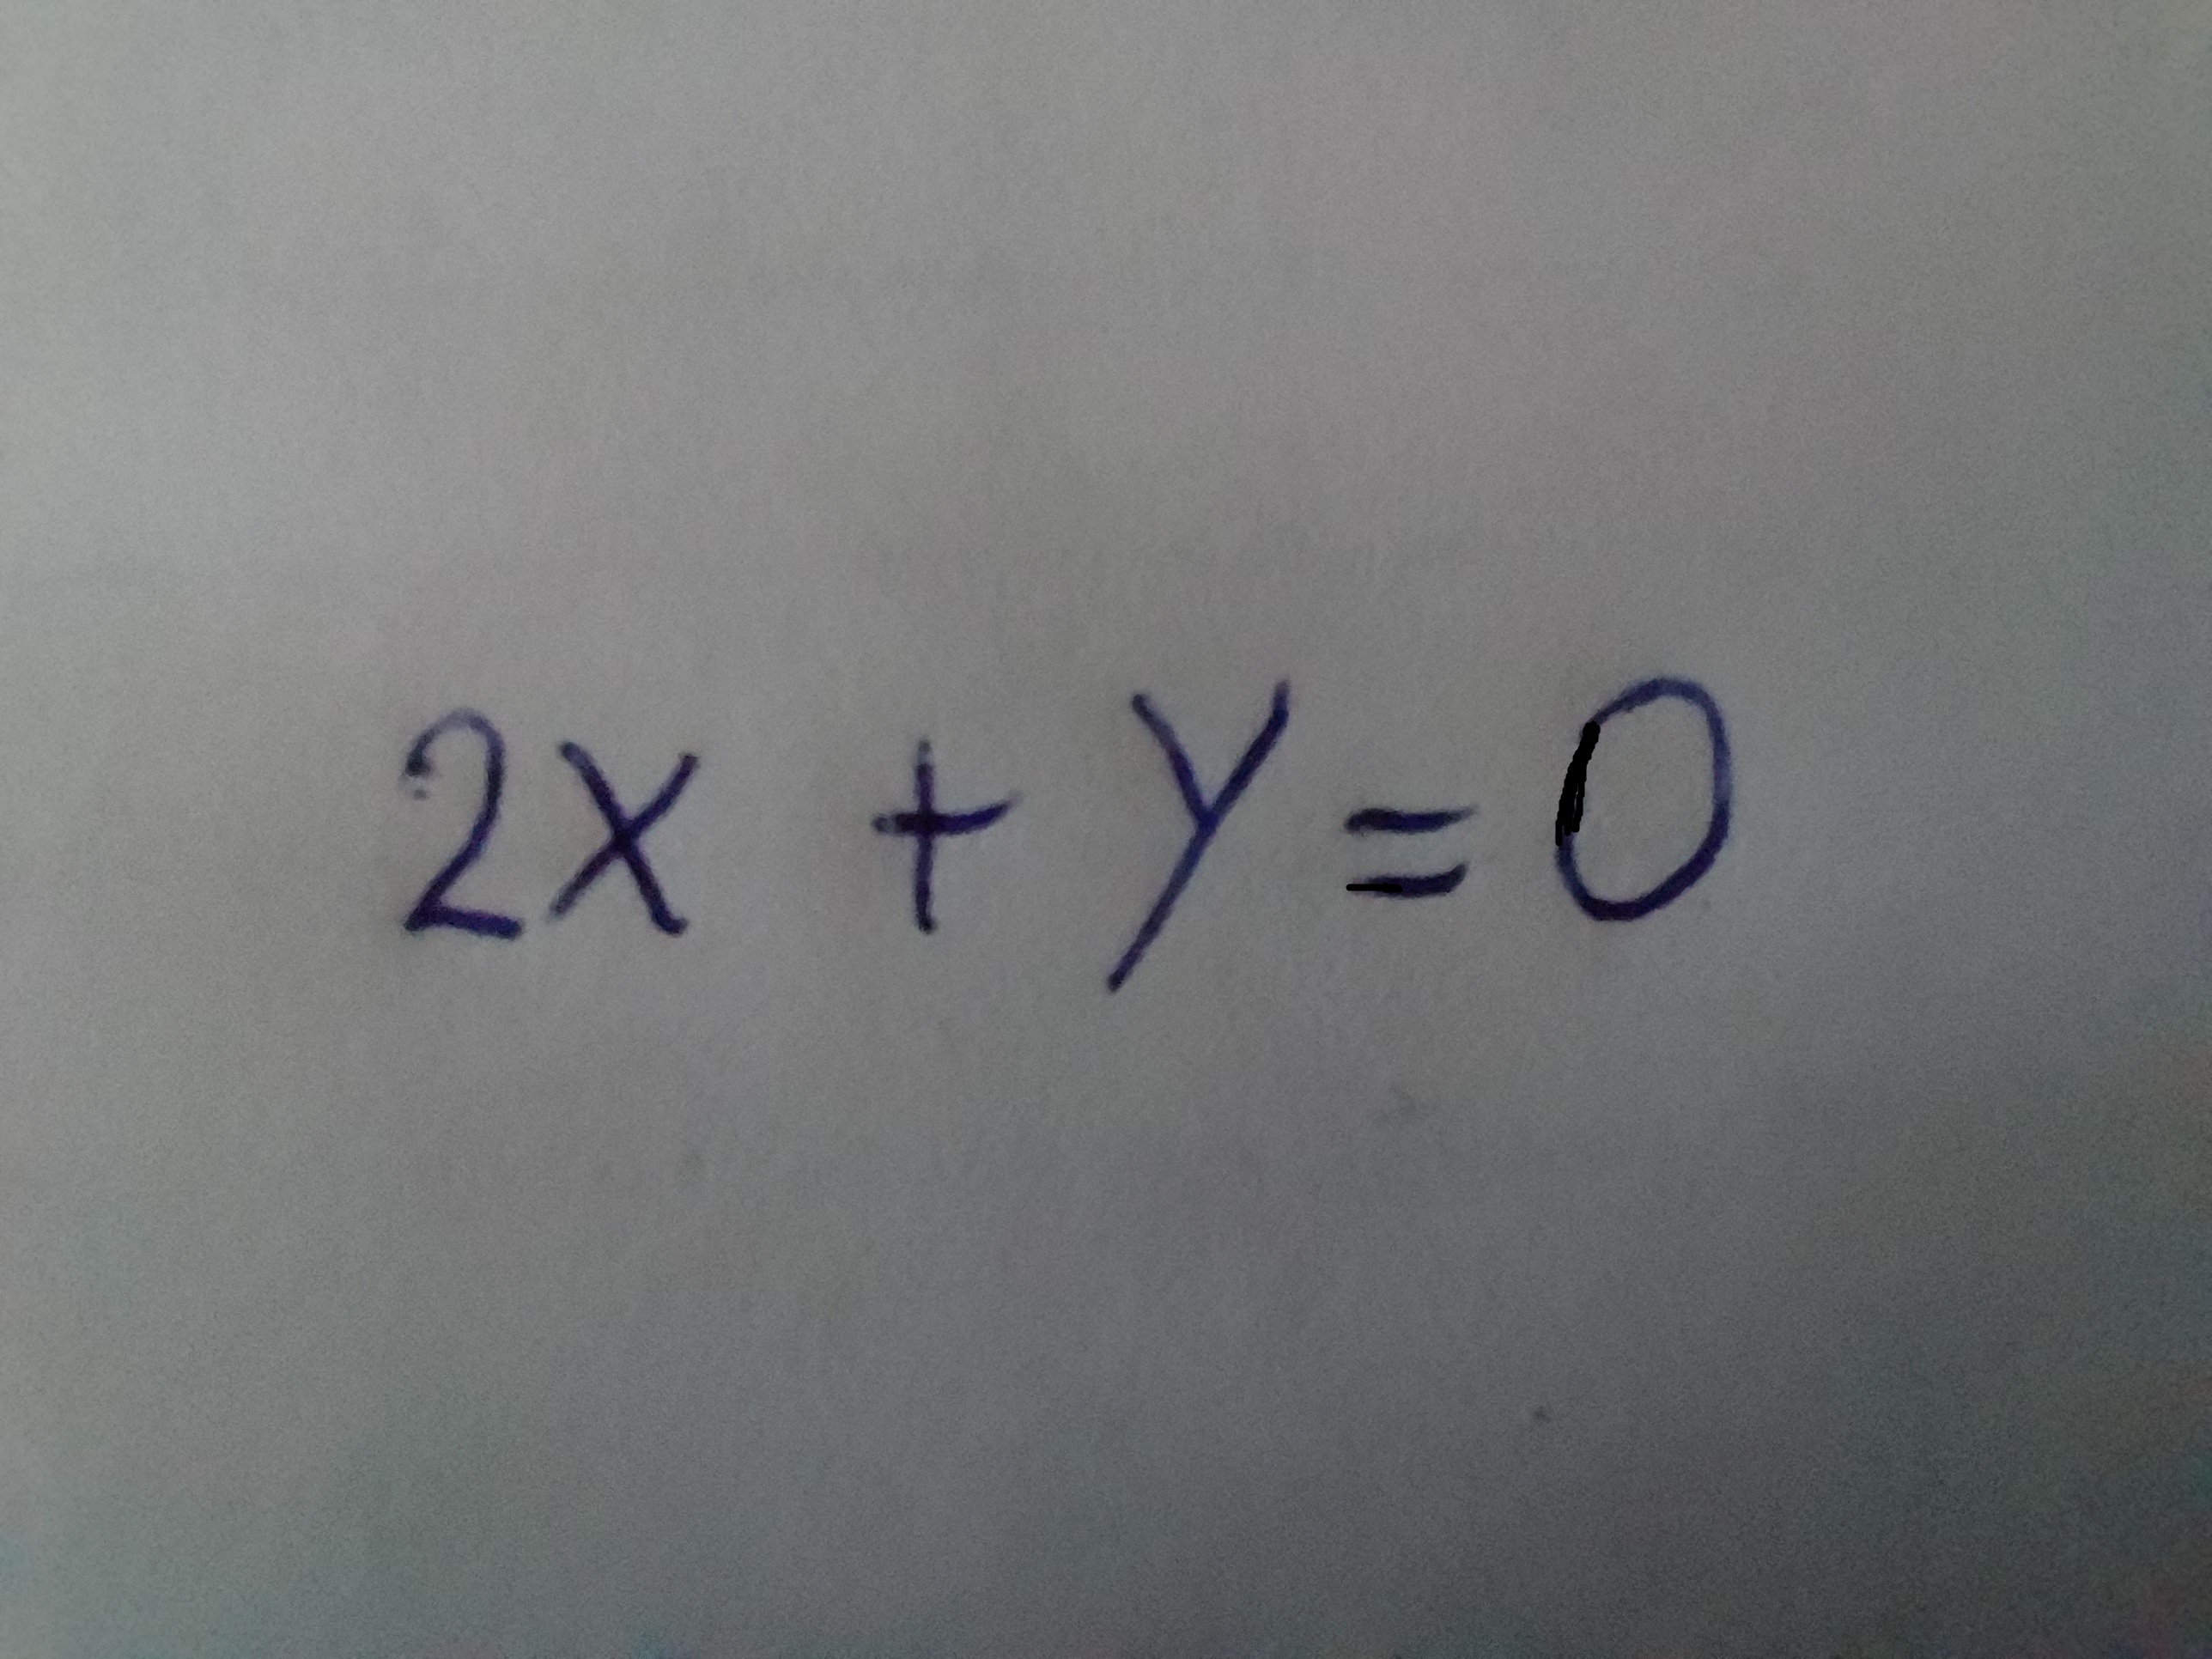 2x + y = 0